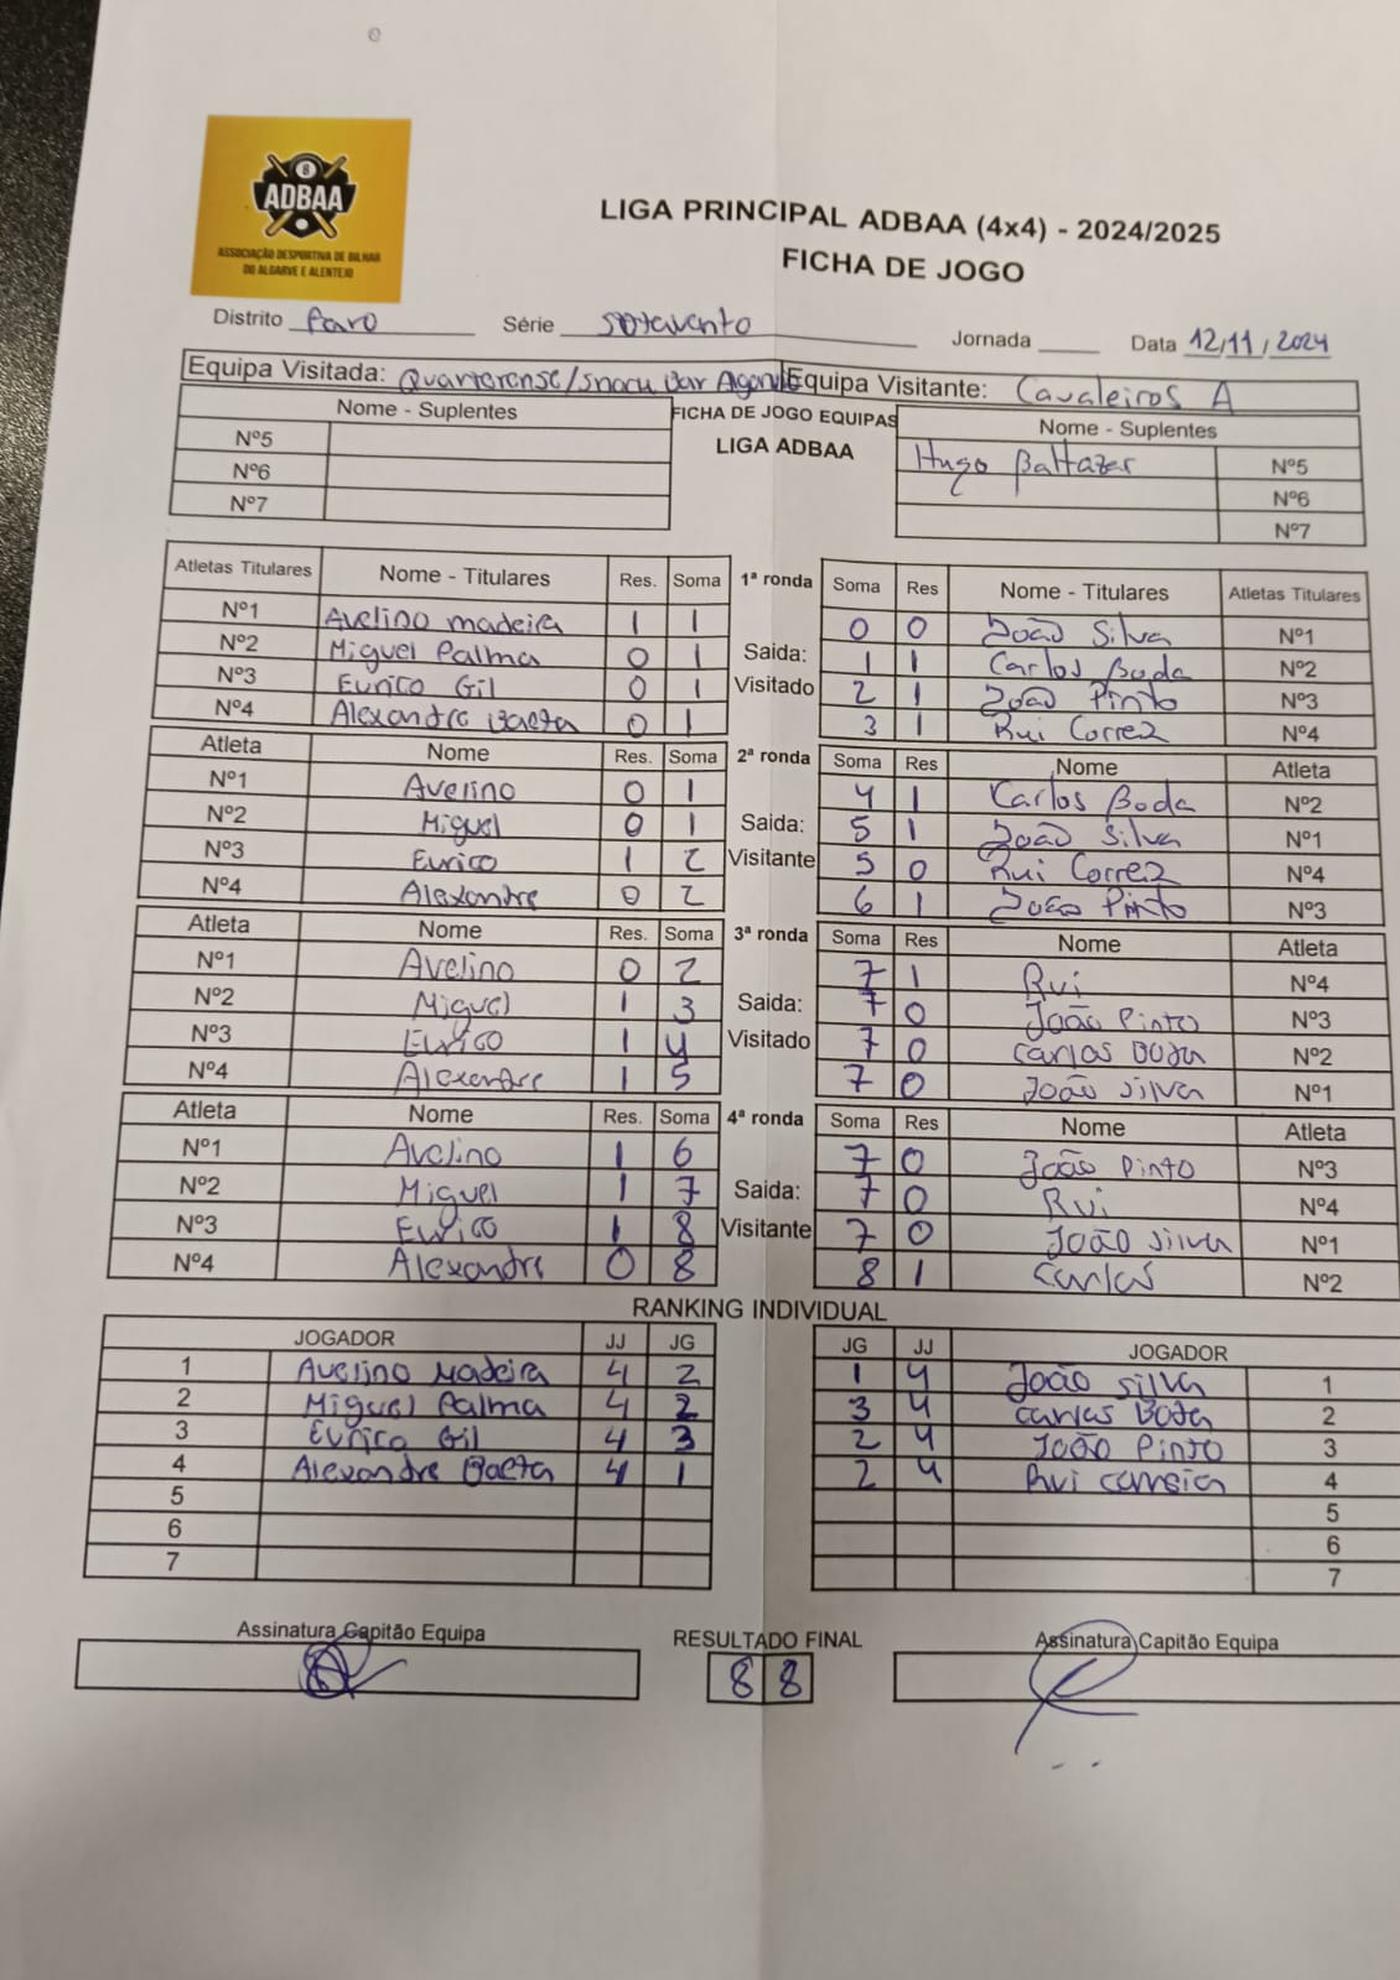 8
ADBAA
ASSOCIAÇÃO DESPORTIVA DE BILHAR
DO ALGARVE E ALENTEJO
LIGA PRINCIPAL ADBAA (4x4) - 2024/2025
FICHA DE JOGO
Distrito Faro Série Sotavento Jornada Data 12/11/2024
Equipa Visitada: Quarterense/Snack Bar Equipa Visitante: Cavaleiros A
Nome - Suplentes FICHA DE JOGO EQUIPAS Nome - Suplentes
Nº5 LIGA ADBAA Hugo Baltazar Nº5
Nº6 Nº6
Nº7 Nº7
Atletas Titulares Nome - Titulares Res. Soma 1ª ronda Soma Res Nome - Titulares Atletas Titulares
Nº1 Avelino madeira 1 1 0 0 João Silva Nº1
Nº2 Miguel Palma 0 1 Saida: 1 1 Carlos Boda Nº2
Nº3 Eurico Gil 0 1 Visitado 2 1 João Pinto Nº3
Nº4 Alexandre Baeta 0 1 3 1 Rui Correia Nº4
Atleta Nome Res. Soma 2ª ronda Soma Res Nome Atleta
Nº1 Avelino 0 1 4 1 Carlos Boda Nº2
Nº2 Miguel 0 1 Saida: 5 1 João Silva Nº1
Nº3 Eurico 1 2 Visitante 5 0 Rui Correia Nº4
Nº4 Alexandre 0 2 6 1 João Pinto Nº3
Atleta Nome Res. Soma 3ª ronda Soma Res Nome Atleta
Nº1 Avelino 0 2 7 1 Rui Nº4
Nº2 Miguel 1 3 Saida: 7 0 João Pinto Nº3
Nº3 Eurico 1 4 Visitado 7 0 Carlos Boda Nº2
Nº4 Alexandre 1 5 7 0 João Silva Nº1
Atleta Nome Res. Soma 4ª ronda Soma Res Nome Atleta
Nº1 Avelino 1 6 7 0 João Pinto Nº3
Nº2 Miguel 1 7 Saida: 7 0 Rui Nº4
Nº3 Eurico 1 8 Visitante 7 0 João Silva Nº1
Nº4 Alexandre 0 8 8 1 Carlos Nº2
RANKING INDIVIDUAL
JOGADOR JJ JG JG JJ JOGADOR
1 Avelino Madeira 4 2 1 4 João Silva 1
2 Miguel Palma 4 2 3 4 Carlos Boda 2
3 Eurico Gil 4 3 2 4 João Pinto 3
4 Alexandre Baeta 4 1 2 4 Rui 4
5 5
6 6
7 7
Assinatura Capitão Equipa RESULTADO FINAL Assinatura Capitão Equipa
8 8